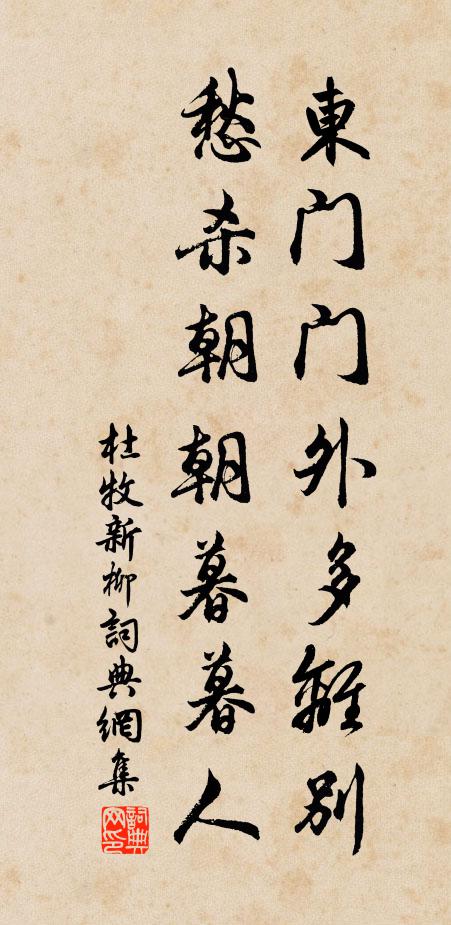 東门门外多離別
愁杀朝朝暮暮人
杜牧新柳詞典網集
詞典网印